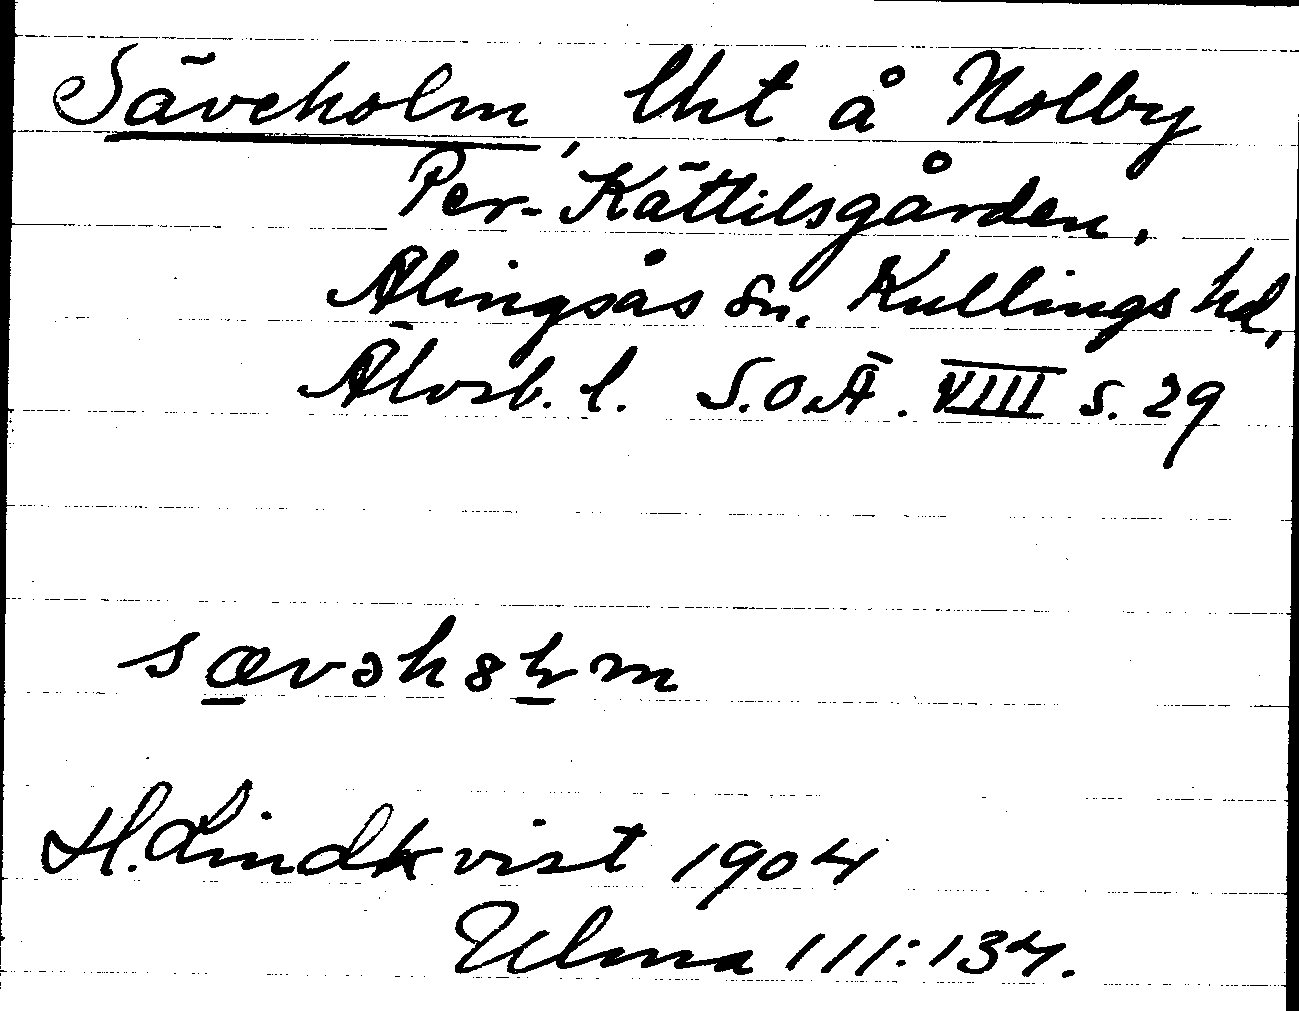 Säveholm, lht å Nolby
Per-Kättilsgården,
Alingsås sn. Kullings hd,
Älvsb. l. S.O.Ä. VIII s. 29
sævəh8ɬm
H. Lindkvist 1904
Ulma 111:134.